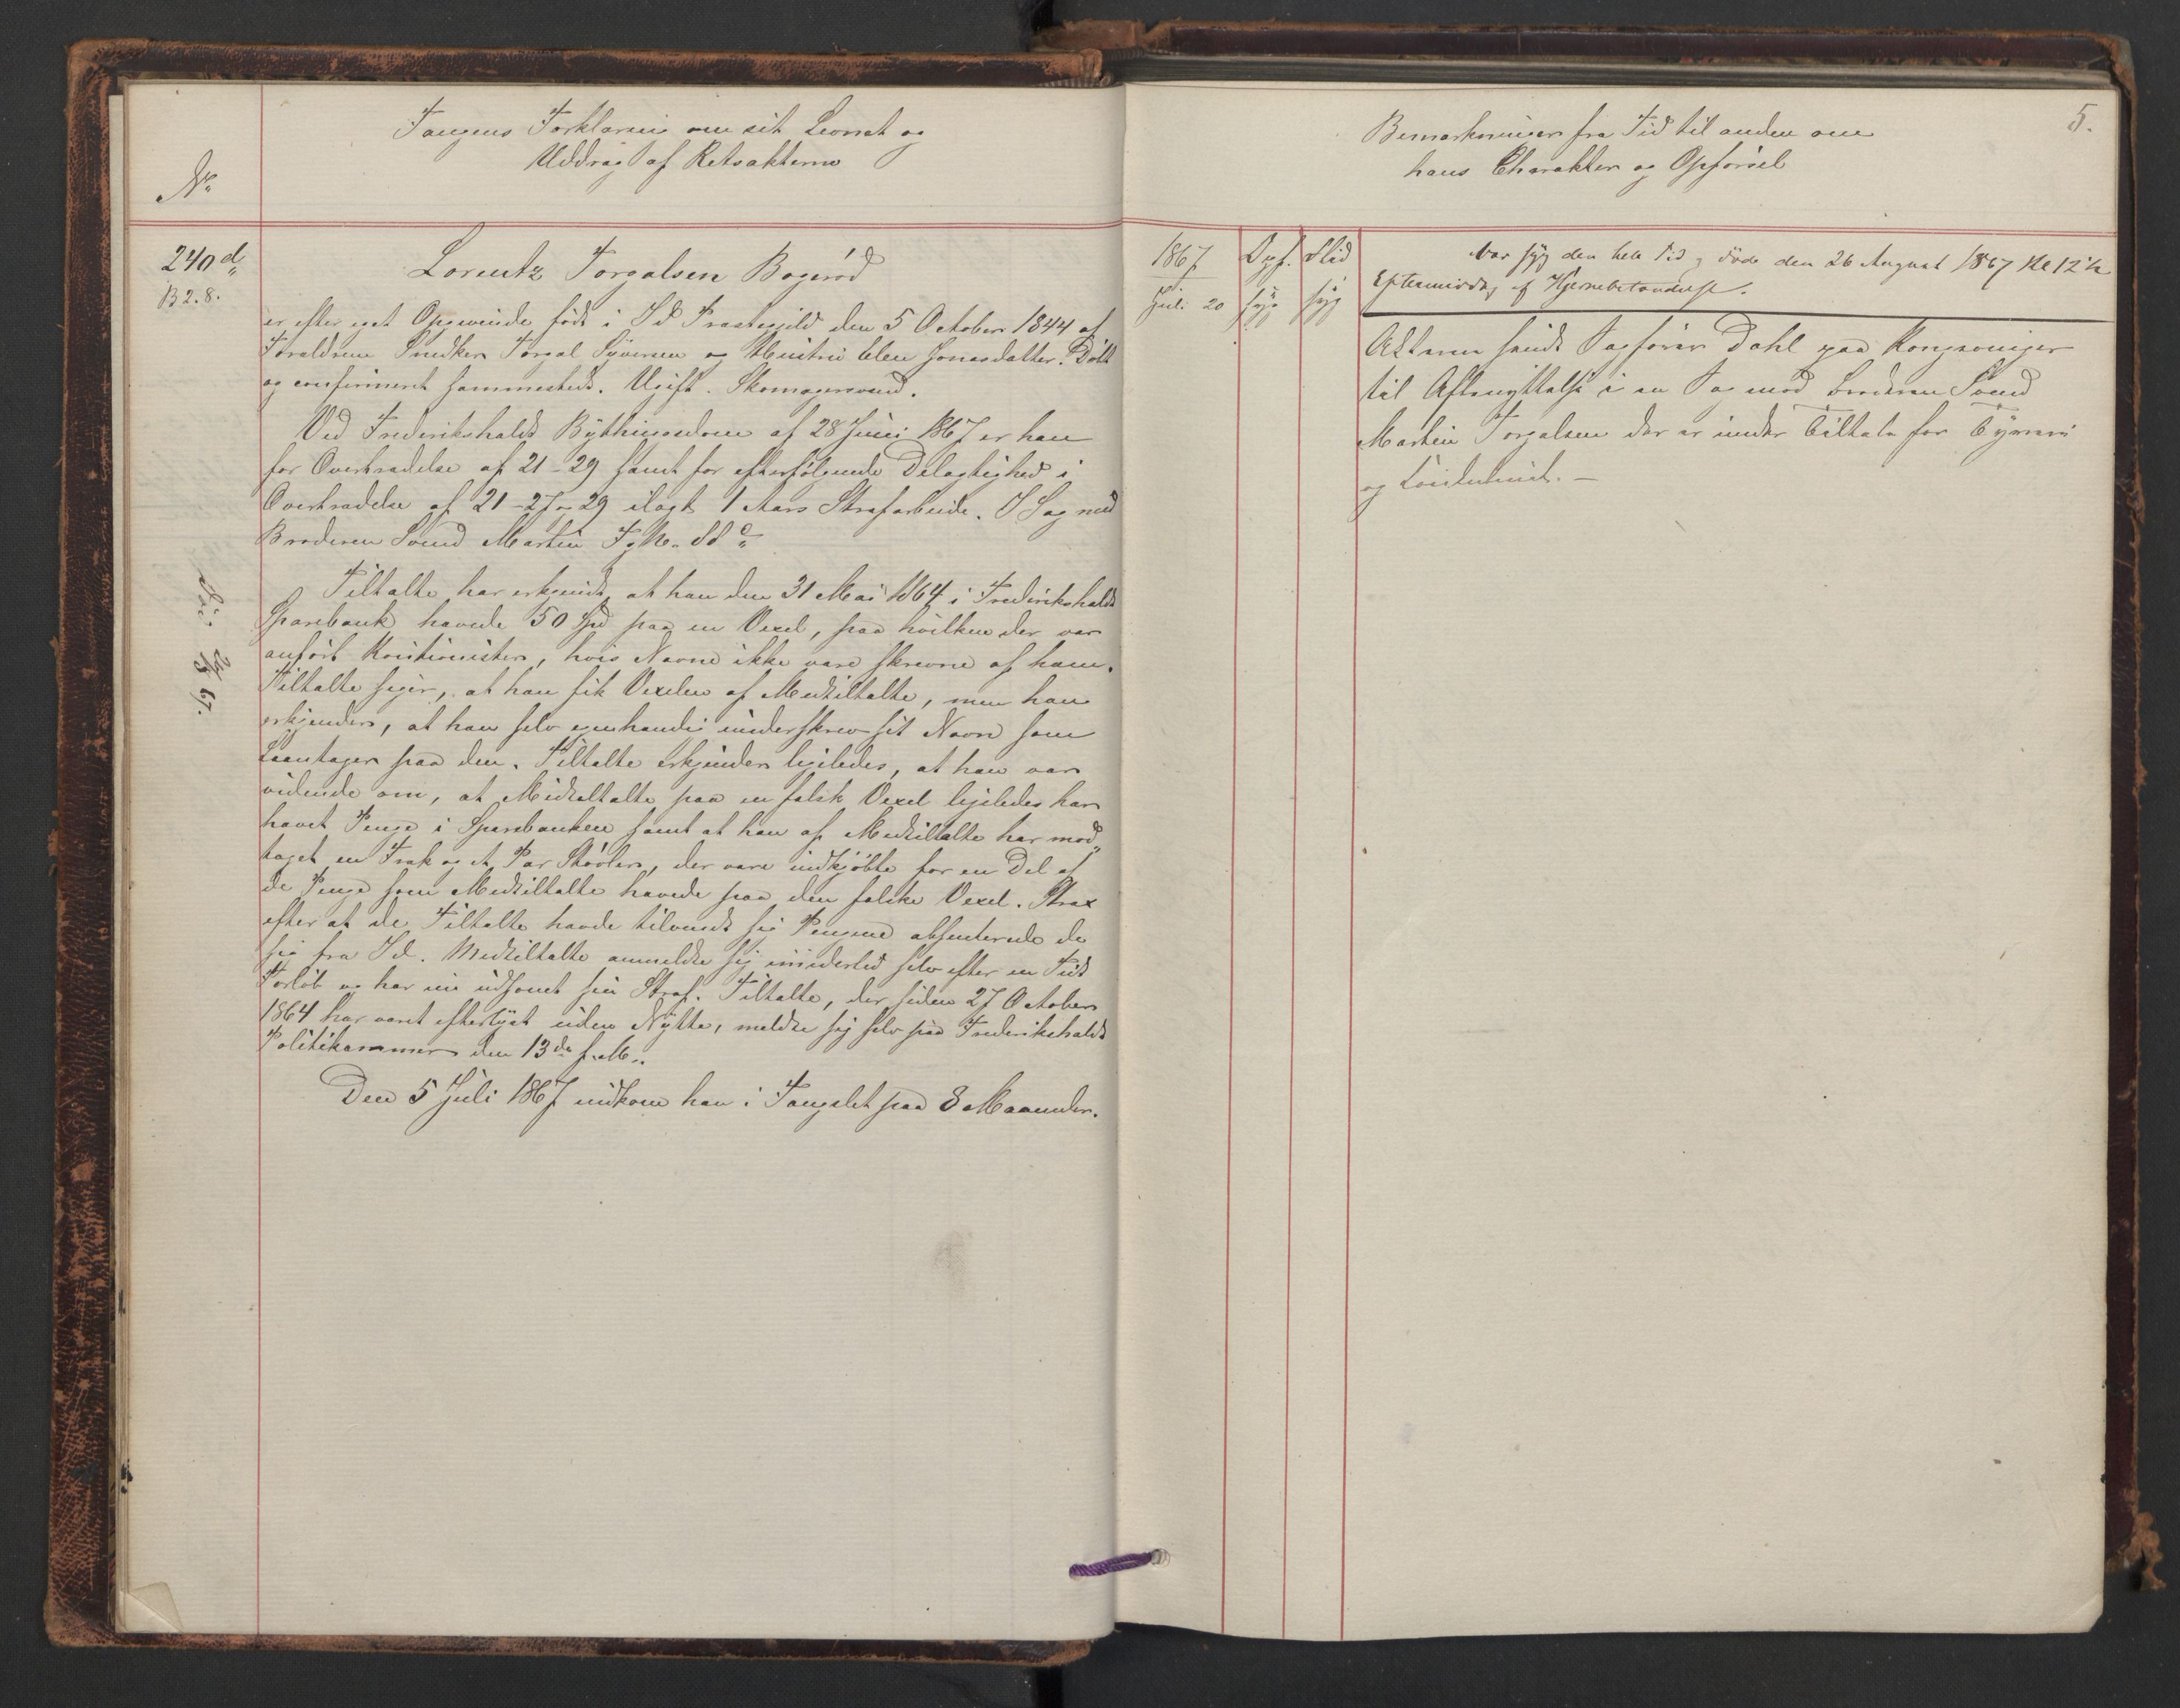 Fangens Forklaring om sit Levnet og
Uddrag af Retsakterne
No
240 d.
B 2. 8.
Lorentz Torgalsen Bogerød
er efter eget Opgivende født i Id Præstegjeld den 5 October 1844 af
Forældrene Snedker Torgal Syversen og Hustru Elen Jonasdatter. Døbt
og confirmeret sammesteds. Ugift. Skomagersvend.
Ved Frederikshalds Bythingsdom af 28 Juni 1867 er han
for Overtrædelse af 21-29 samt for efterfølgende Delagtighed i
Overtrædelse af 21-27-29 ilagt 1 Aars Strafarbeide. I Sag med
Broderen Svend Martin F. No.
Tiltalte har erkjendt, at han den 31 Mai 1864 i Frederikshalds
Sparebank hævede 50 Spd paa en Vexel, paa hvilken der var
anført Kautionister, hvis Navne ikke vare skrevne af ham.
Tiltalte siger, at han fik Vexelen af Medtiltalte, men han
erkjender, at han selv egenhændig underskrev sit Navn som
Laantager paa den. Tiltalte erkjender ligeledes, at han var
vidende om, at Medtiltalte paa en falsk Vexel ligeledes har
hævet Penge i Sparebanken samt at han af Medtiltalte har mod-
taget en Frak og et Par Støvler, der vare indkjøbte for en Del af
de Penge som Medtiltalte hævede paa den falske Vexel. Strax
efter at de Tiltalte havde tilvendt sig Pengene absenterede de
sig fra Id. Medtiltalte anmeldte sig imidlertid selv efter en Tids
Forløb og har nu udsonet sin Straf. Tiltalte, der siden 27 October
1864 har været efterlyst uden Nytte, meldte sig selv paa Frederikshalds
Politikammer den 13de f. M.
Den 5 Juli 1867 indkom han i Fangslet paa 8 Maaneder.
5.
Bemærkninger fra Tid til anden om
hans Charakter og Opførsel
1867 Opf. Flid
Juli 20 syg syg
Var syg den hele Tid og døde den 26 August 1867 Kl 12½
Eftermiddag af Hjernebetændelse.
Akterne sendt Sagfører Dahl paa Kongsvinger
til Afbenyttelse i en Sag mod Broderen Svend
Martin Torgalsen der er under Tiltale for Tyveri
og